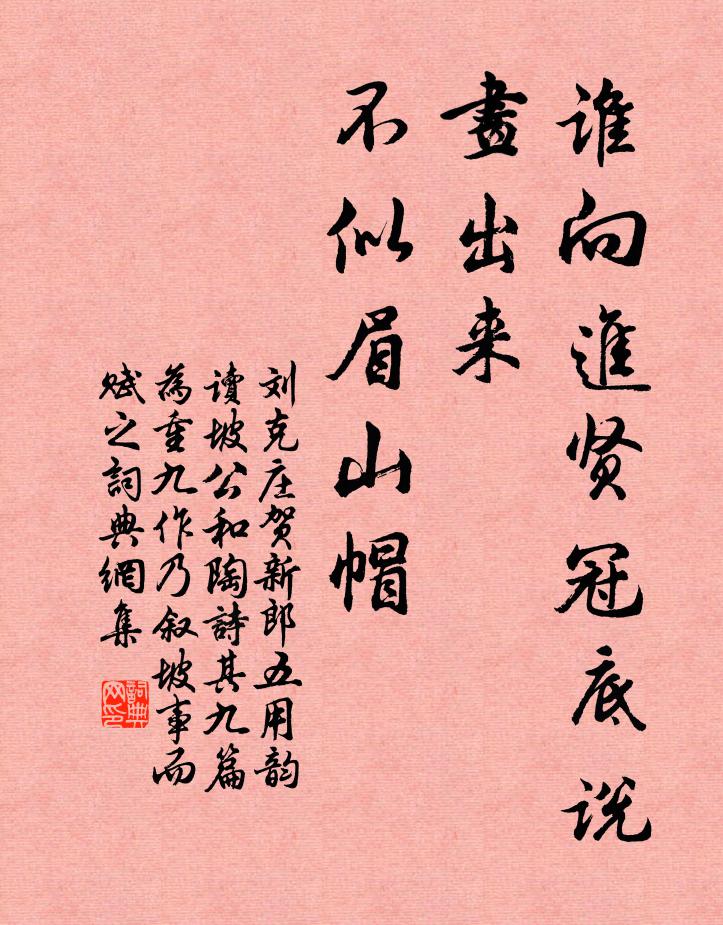 谁向進贤冠底说
畫出来
不似眉山帽
刘克庄贺新郎五用韵
讀坡公和陶詩其九篇
為重九作乃叙坡事而
赋之詞典網集
詞典网印